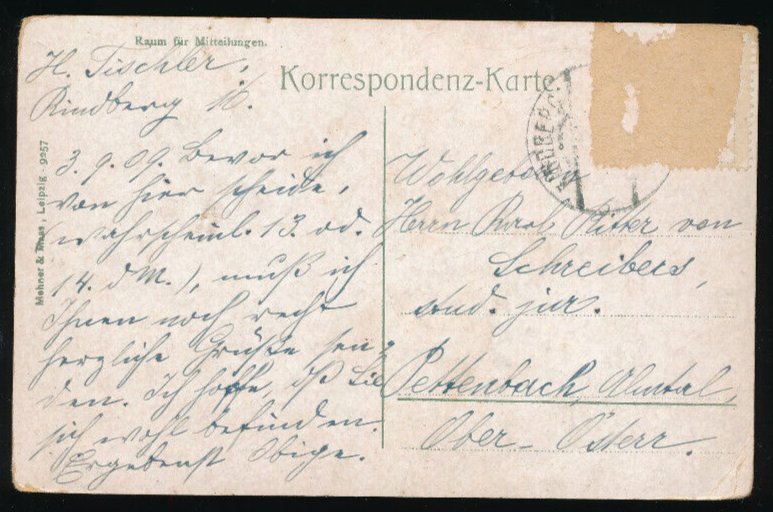 Raum für Mitteilungen.
Korrespondenz-Karte.
H. Tischler,
Kindberg 16.
3. 9. 09. Bevor ich
von hier scheide,
wahrscheinl. 13. od.
14. d M.), muß ich
Ihnen noch recht
herzliche Grüße sen-
den. Ich hoffe, daß Sie
sich wohl befinden.
Ergebenst Obige.
Mehner & Maas, Leipzig 9257
Wohlgeboren
Herrn Karl Ritter von
Schreibers,
stud. jur.
Pettenbach, Almtal,
Ober-Österr.
KINDBERG